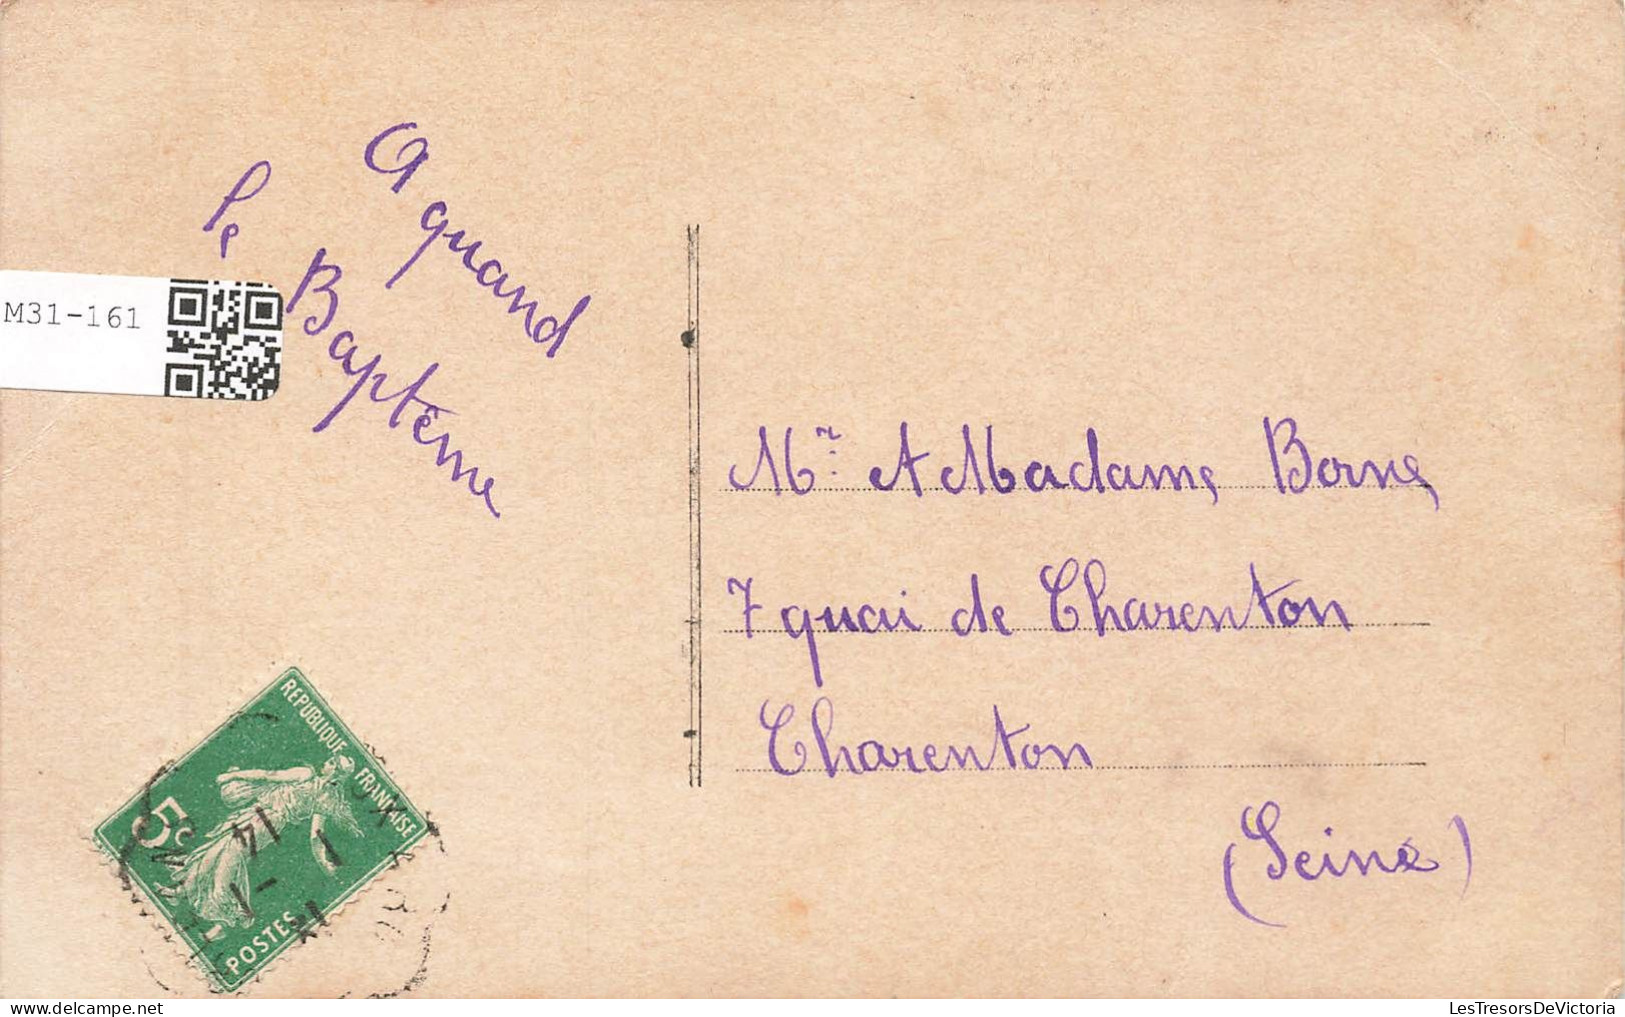 A quand
le Baptême
M31-161
Mr. et Madame Borne
7 quai de Charenton
Charenton
(Seine)
REPUBLIQUE FRANÇAISE
5c
POSTES
14
LesTresorsDeVictoria.com